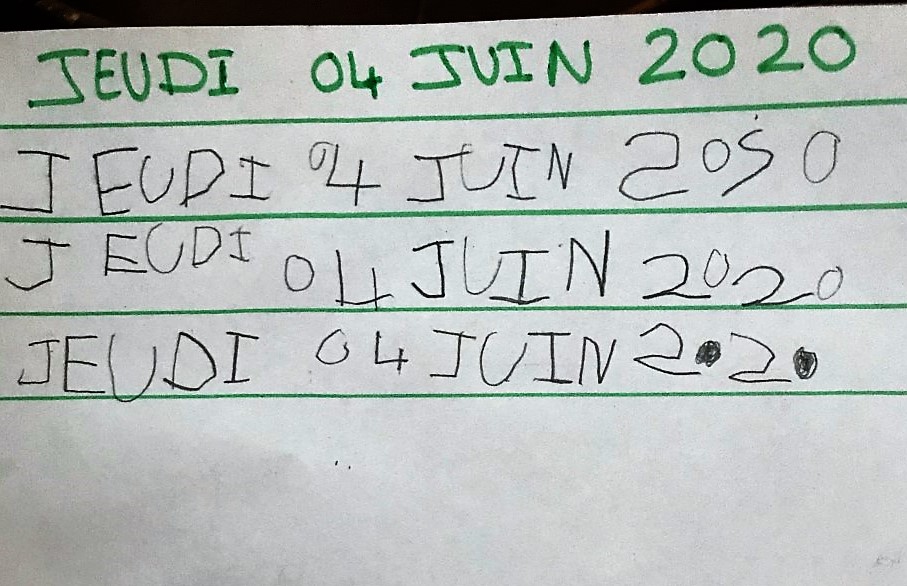 JEUDI 04 JUIN 2020
JEUDI 04 JUIN 20S0
JEUDI 04 JUIN 2020
JEUDI 04 JUIN 2020